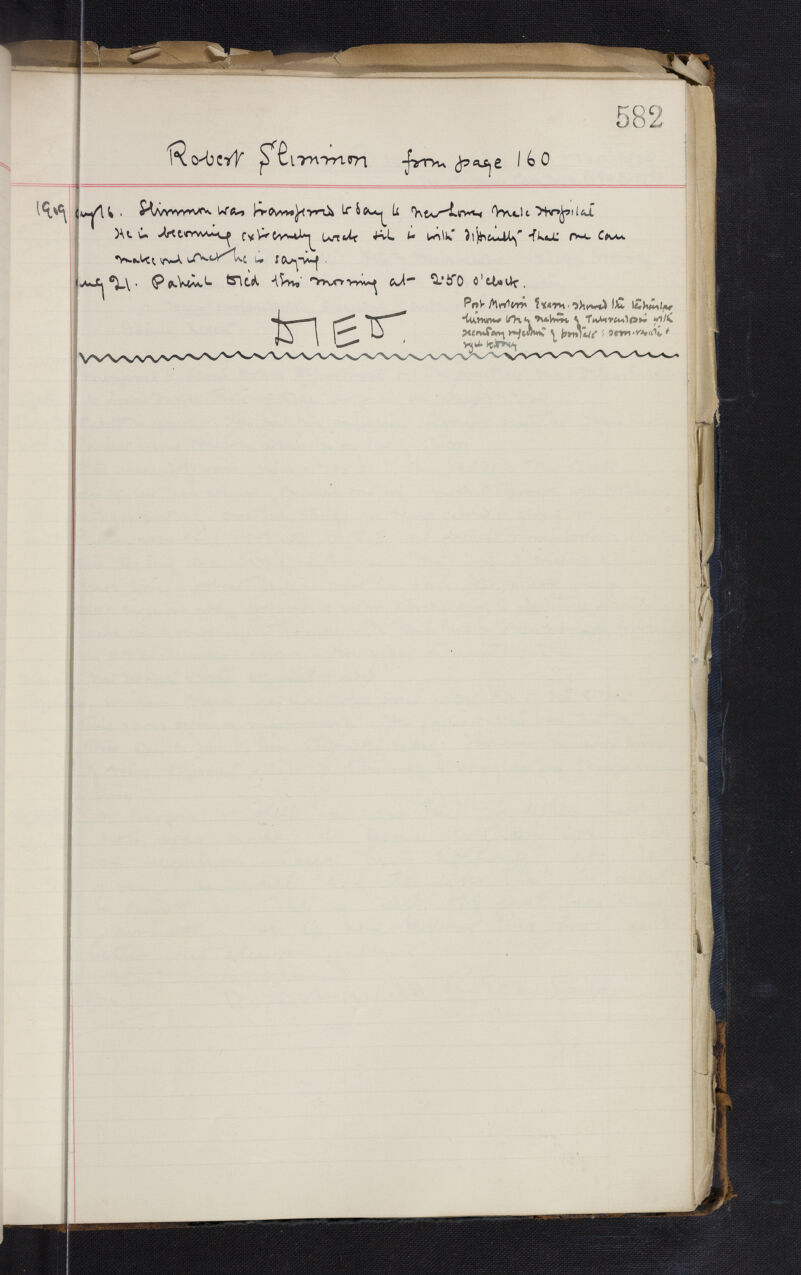 582
Robert Slimmon from page 160
1909 Aug 16. Slimmon was transferred to day to new Lower Male Hospital
He is becoming extremely weak & it is with difficulty that one can
make out what he is saying.
Aug 21. Patient died this morning at 2.50 o'clock.
DIED.
Post Mortem Exam. showed the testicular
tumour to be of nature of Tuberculosis with
secondary infection of prostate : semi. vesicle &
right kidney